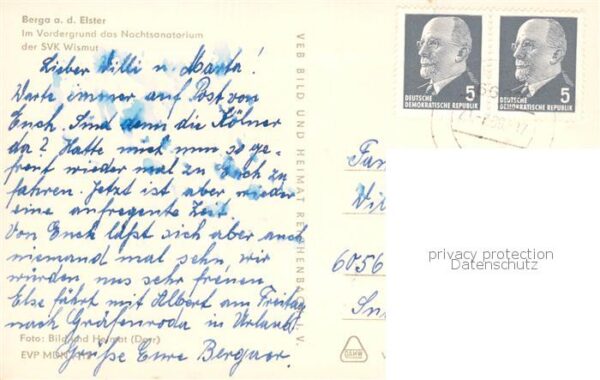 Berga a. d. Elster
Im Vordergrund das Nachtsanatorium
der SVK Wismut
Lieber Willi u. Marta!
Warte immer auf Post von
Euch. Sind denn die Kölner
da? Hatte mich nun so ge-
freut wieder mal zu Euch zu
fahren. Jetzt ist aber wieder
eine aufregente Zeit.
Von Euch läßt sich aber auch
niemand mal sehn, wir
würden uns sehr freuen.
Else fährt mit Albert am Freitag
nach Gräfenroda in Urlaub
Grüße Eure Bergaer.
Foto: Bild und Heimat (Darr)
EVP MDN
VEB BILD UND HEIMAT REICHENBACH i. V.
5
DEUTSCHE
DEMOKRATISCHE REPUBLIK
5
DEUTSCHE
DEMOKRATISCHE REPUBLIK
6056
privacy protection
Datenschutz